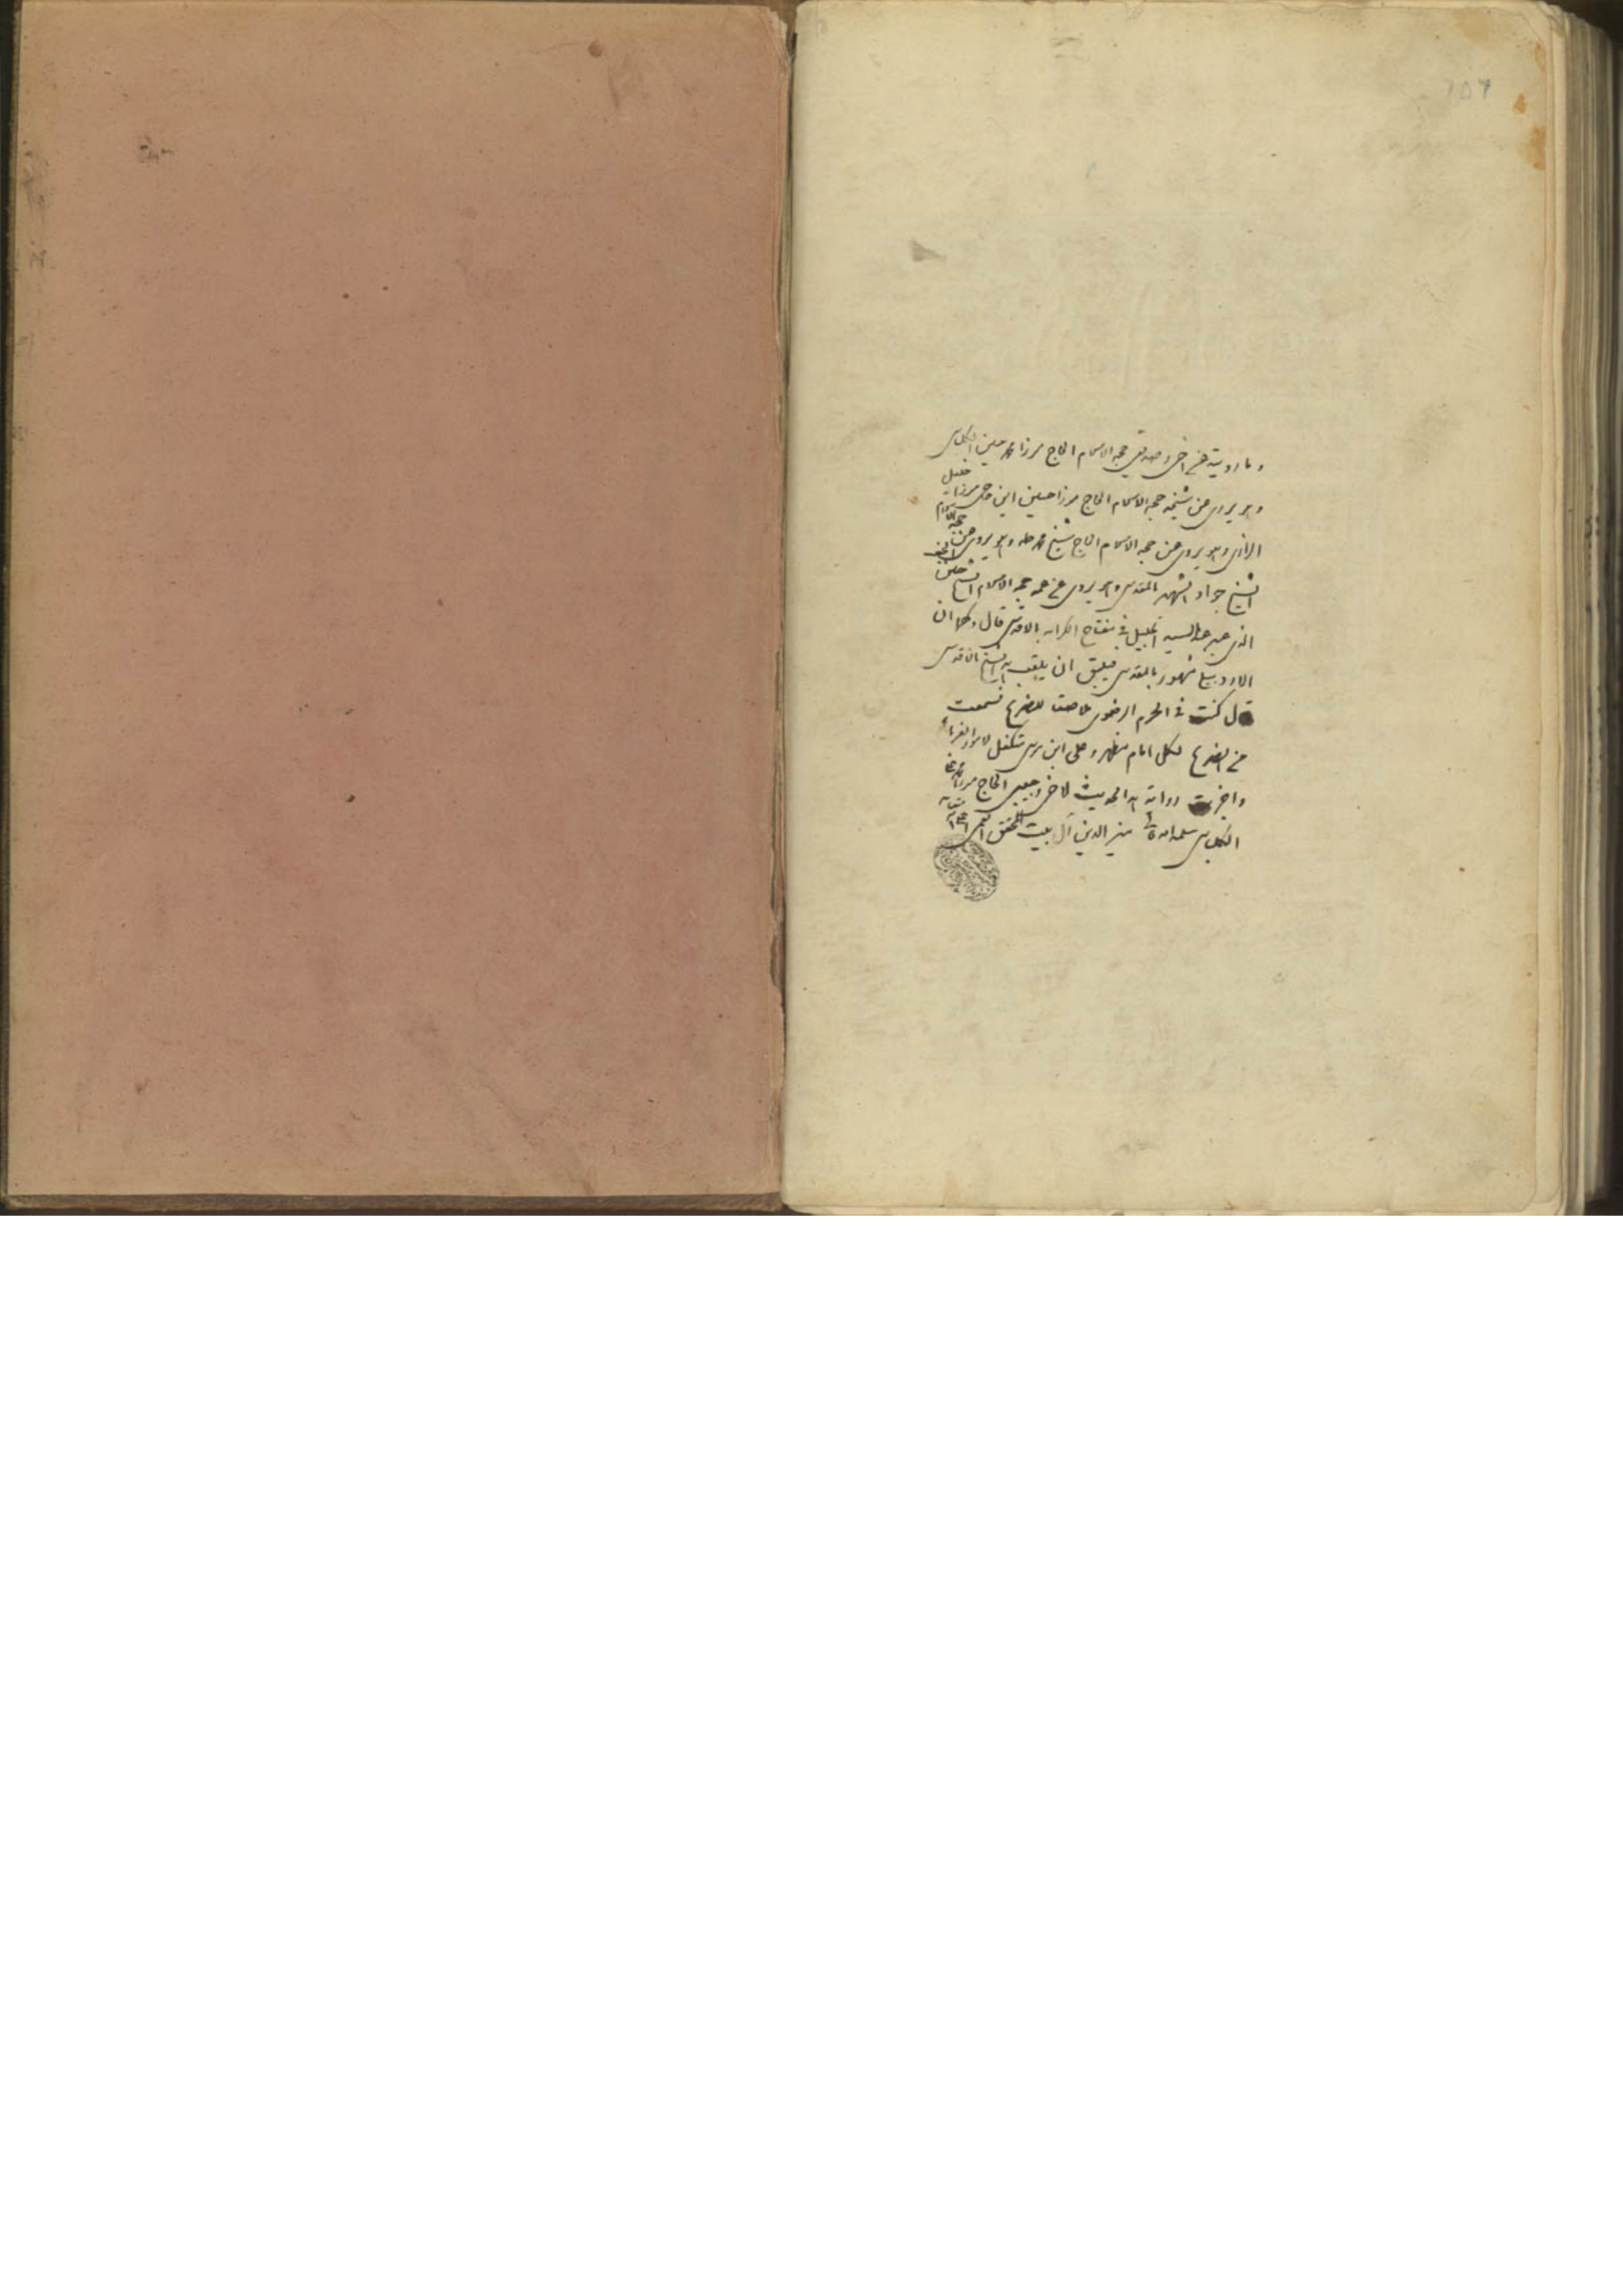 ومما رويته عن اخي وصديقي حجة الاسلام الحاج ميرزا محمد حسين الكلباسي
وهو يروي عن شيخه حجة الاسلام الحاج ميرزا حسين ابن حاجي ميرزا خليل
الرازي وهو يروي عن حجة الاسلام الحاج شيخ محمد طه وهو يروي عن حجة الاسلام
الشيخ جواد الشهير بالمقدس وهو يروي عن عمه حجة الاسلام الشيخ حسين النجف
الذي عبر عنه السيد الجليل في مفتاح الكرامه بالاقدس قال وكما ان
الاردبيلي مشهور بالمقدس فيليق ان يلقب هذا الشيخ بالاقدس
قال كنت في الحرم الرضوي ملاصقا للضريح فسمعت
من الضريح لكل امام مظهر وعلي ابن موسى متكفل لامور الغرباء
واجزت رواية هذا الحديث لاخي وحبيبي الحاج ميرزا محمد رضا
الكلباسي سلمه الله تعالى منير الدين آل بيت المحقق القمي
107